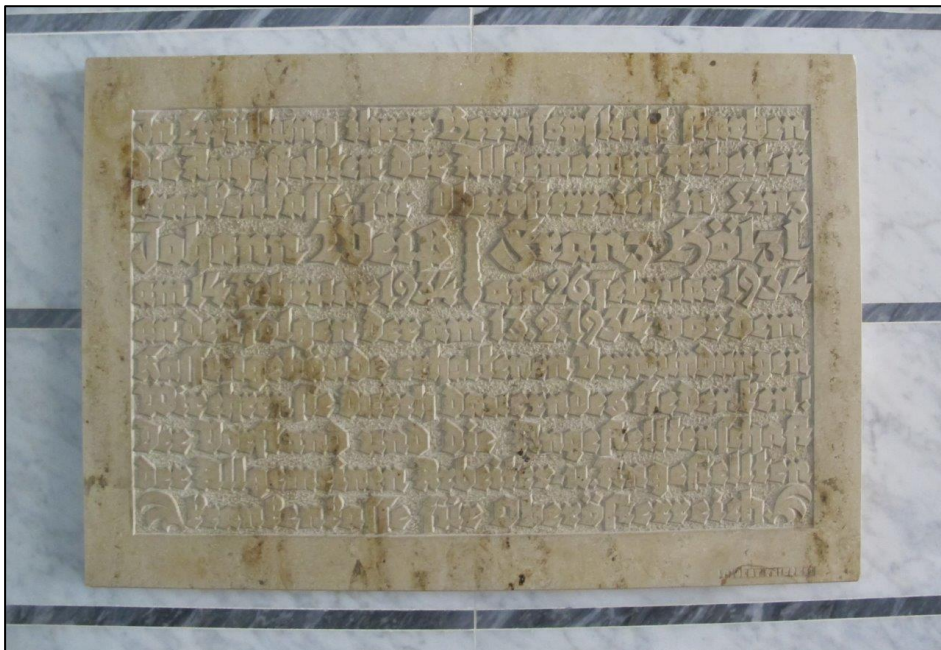 In Erfüllung ihrer Berufspflicht starben
die Angestellten der Allgemeinen Arbeiter
Krankenkasse für Oberösterreich in Linz
Johann Weiß Franz Hölzl
am 14. Februar 1934 am 26. Februar 1934
an den Folgen der am 13.2.1934 vor dem
Kassengebäude erhaltenen Verwundungen
Wir ehren sie durch dauerndes Gedenken!
Der Vorstand und die Angestelltenschaft
der Allgemeinen Arbeiter u. Angestellten
krankenkasse für Oberösterreich